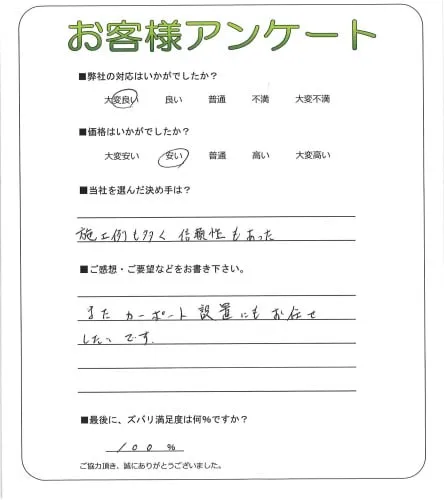 お客様アンケート
■弊社の対応はいかがでしたか？
大変良い 良い 普通 不満 大変不満
■価格はいかがでしたか？
大変安い 安い 普通 高い 大変高い
■当社を選んだ決め手は？
施工例も多く 信頼性もあった
■ご感想・ご要望などをお書き下さい。
またカーポート設置にもお任せ
したいです.
■最後に、ズバリ満足度は何％ですか？
100％
ご協力頂き、誠にありがとうございました。